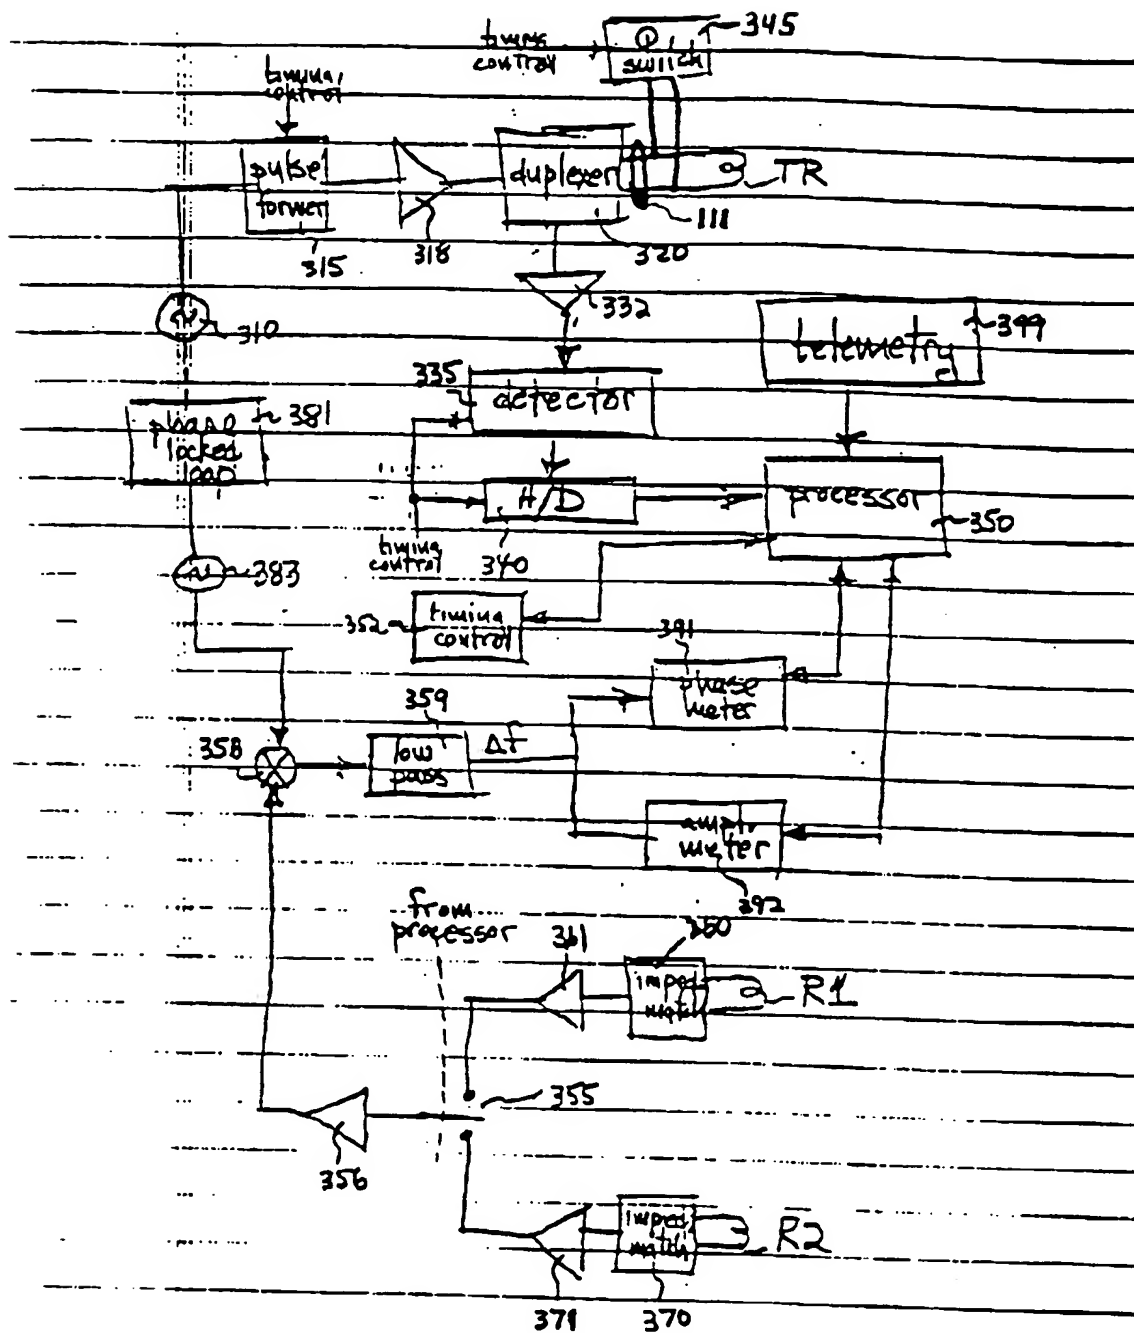 timing
control
Q
switch
345
timing
control
pulse
former
315
318
duplexer
320
TR
111
332
310
telemetry
399
335
detector
phase
locked
loop
381
A/D
340
processor
350
timing
control
383
352
timing
control
391
phase
meter
359
358
low
pass
Δf
ampl.
meter
392
from
processor
361
360
imped
match
R1
355
356
371
imped
match
370
R2